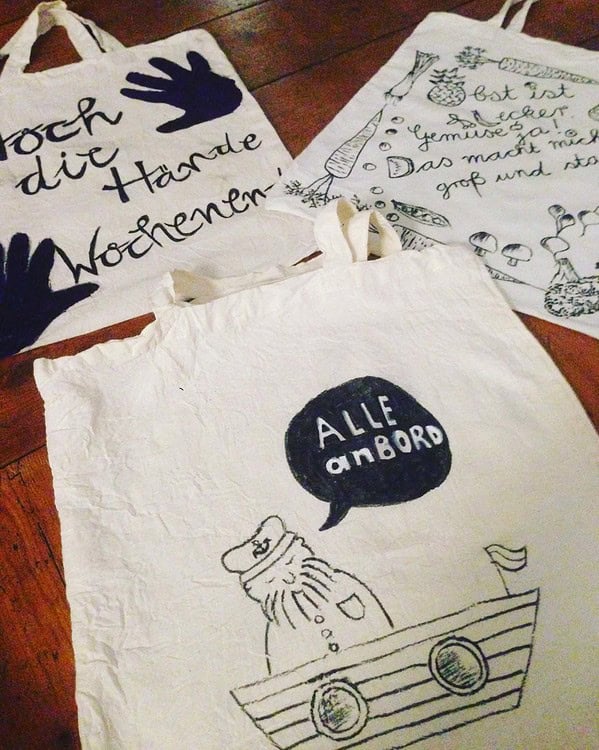 Hoch
die
Hände
Wochenen-
Obst ist
Lecker.
Gemüse ja!
Das macht mich
groß und sta
ALLE
anBORD